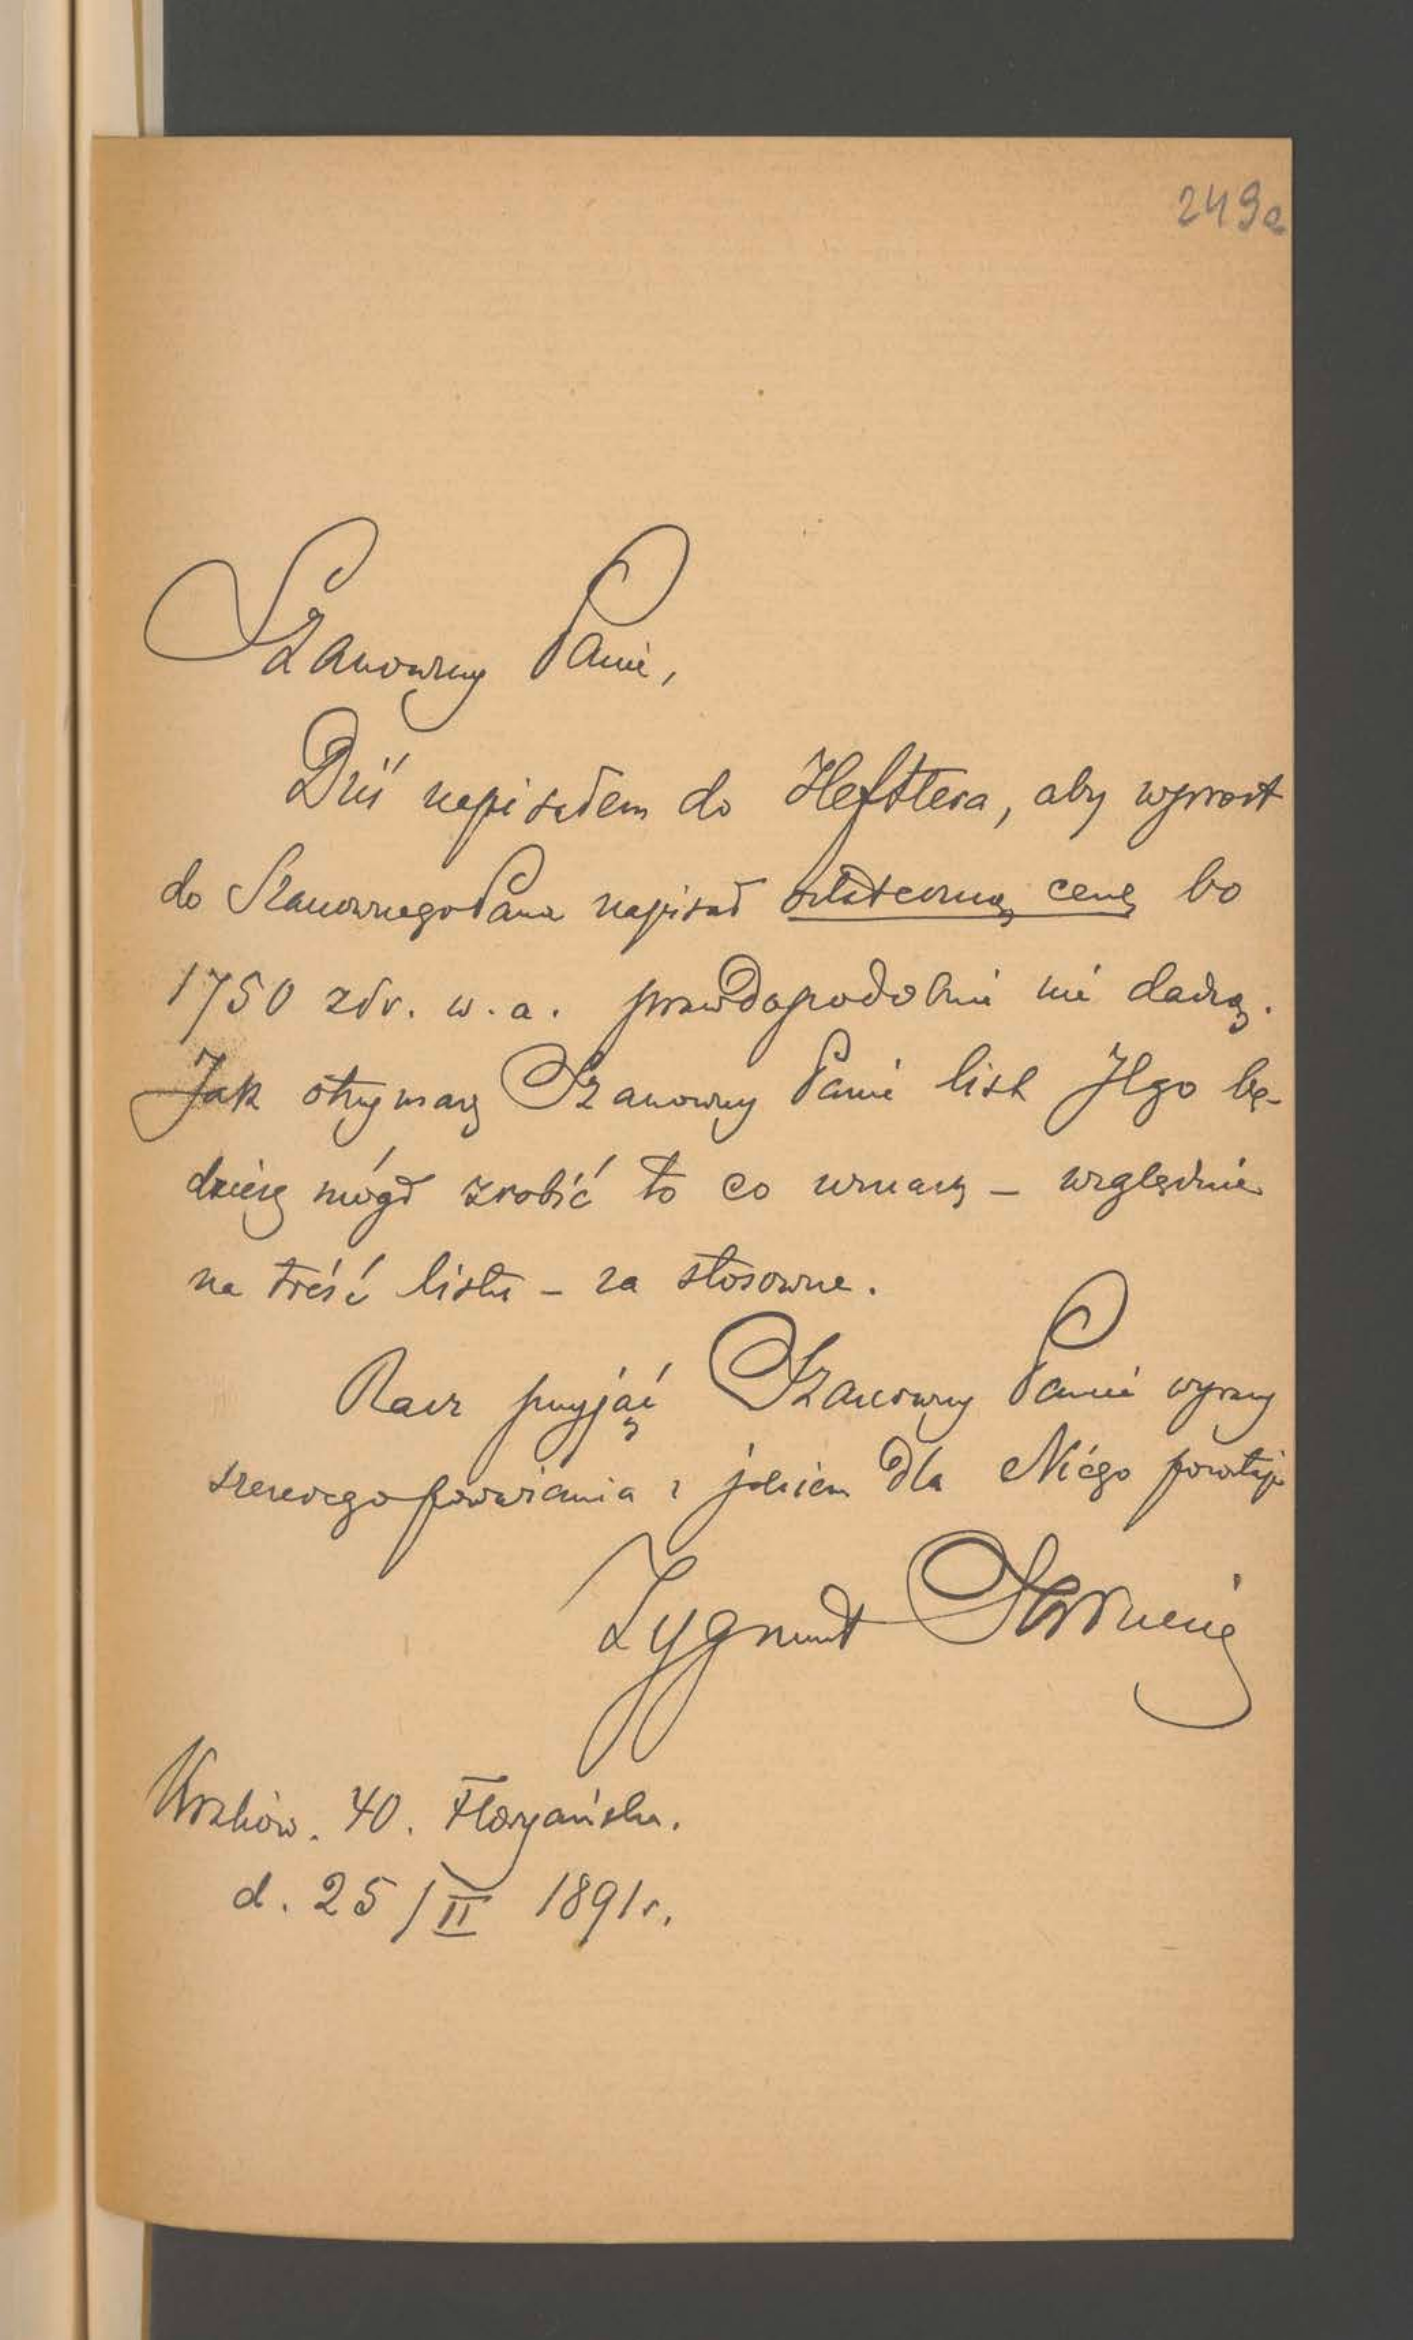 249a
Szanowny Panie,
Dziś napisałem do Hefttera, aby wprost
do Szanownego Pana napisał ostateczną cenę bo
1750 złr. w. a. prawdopodobnie nie dadzą.
Jak otrzymasz Szanowny Panie list Jego bę-
dziesz mógł zrobić to co uznasz – względnie
na treść listu – za stosowne.
Racz przyjąć Szanowny Panie wyrazy
szczerego poważania z jakiem dla Niego pozostaję
Zygmunt
Kraków. 40. Floryańska.
d. 25/II 1891 r.